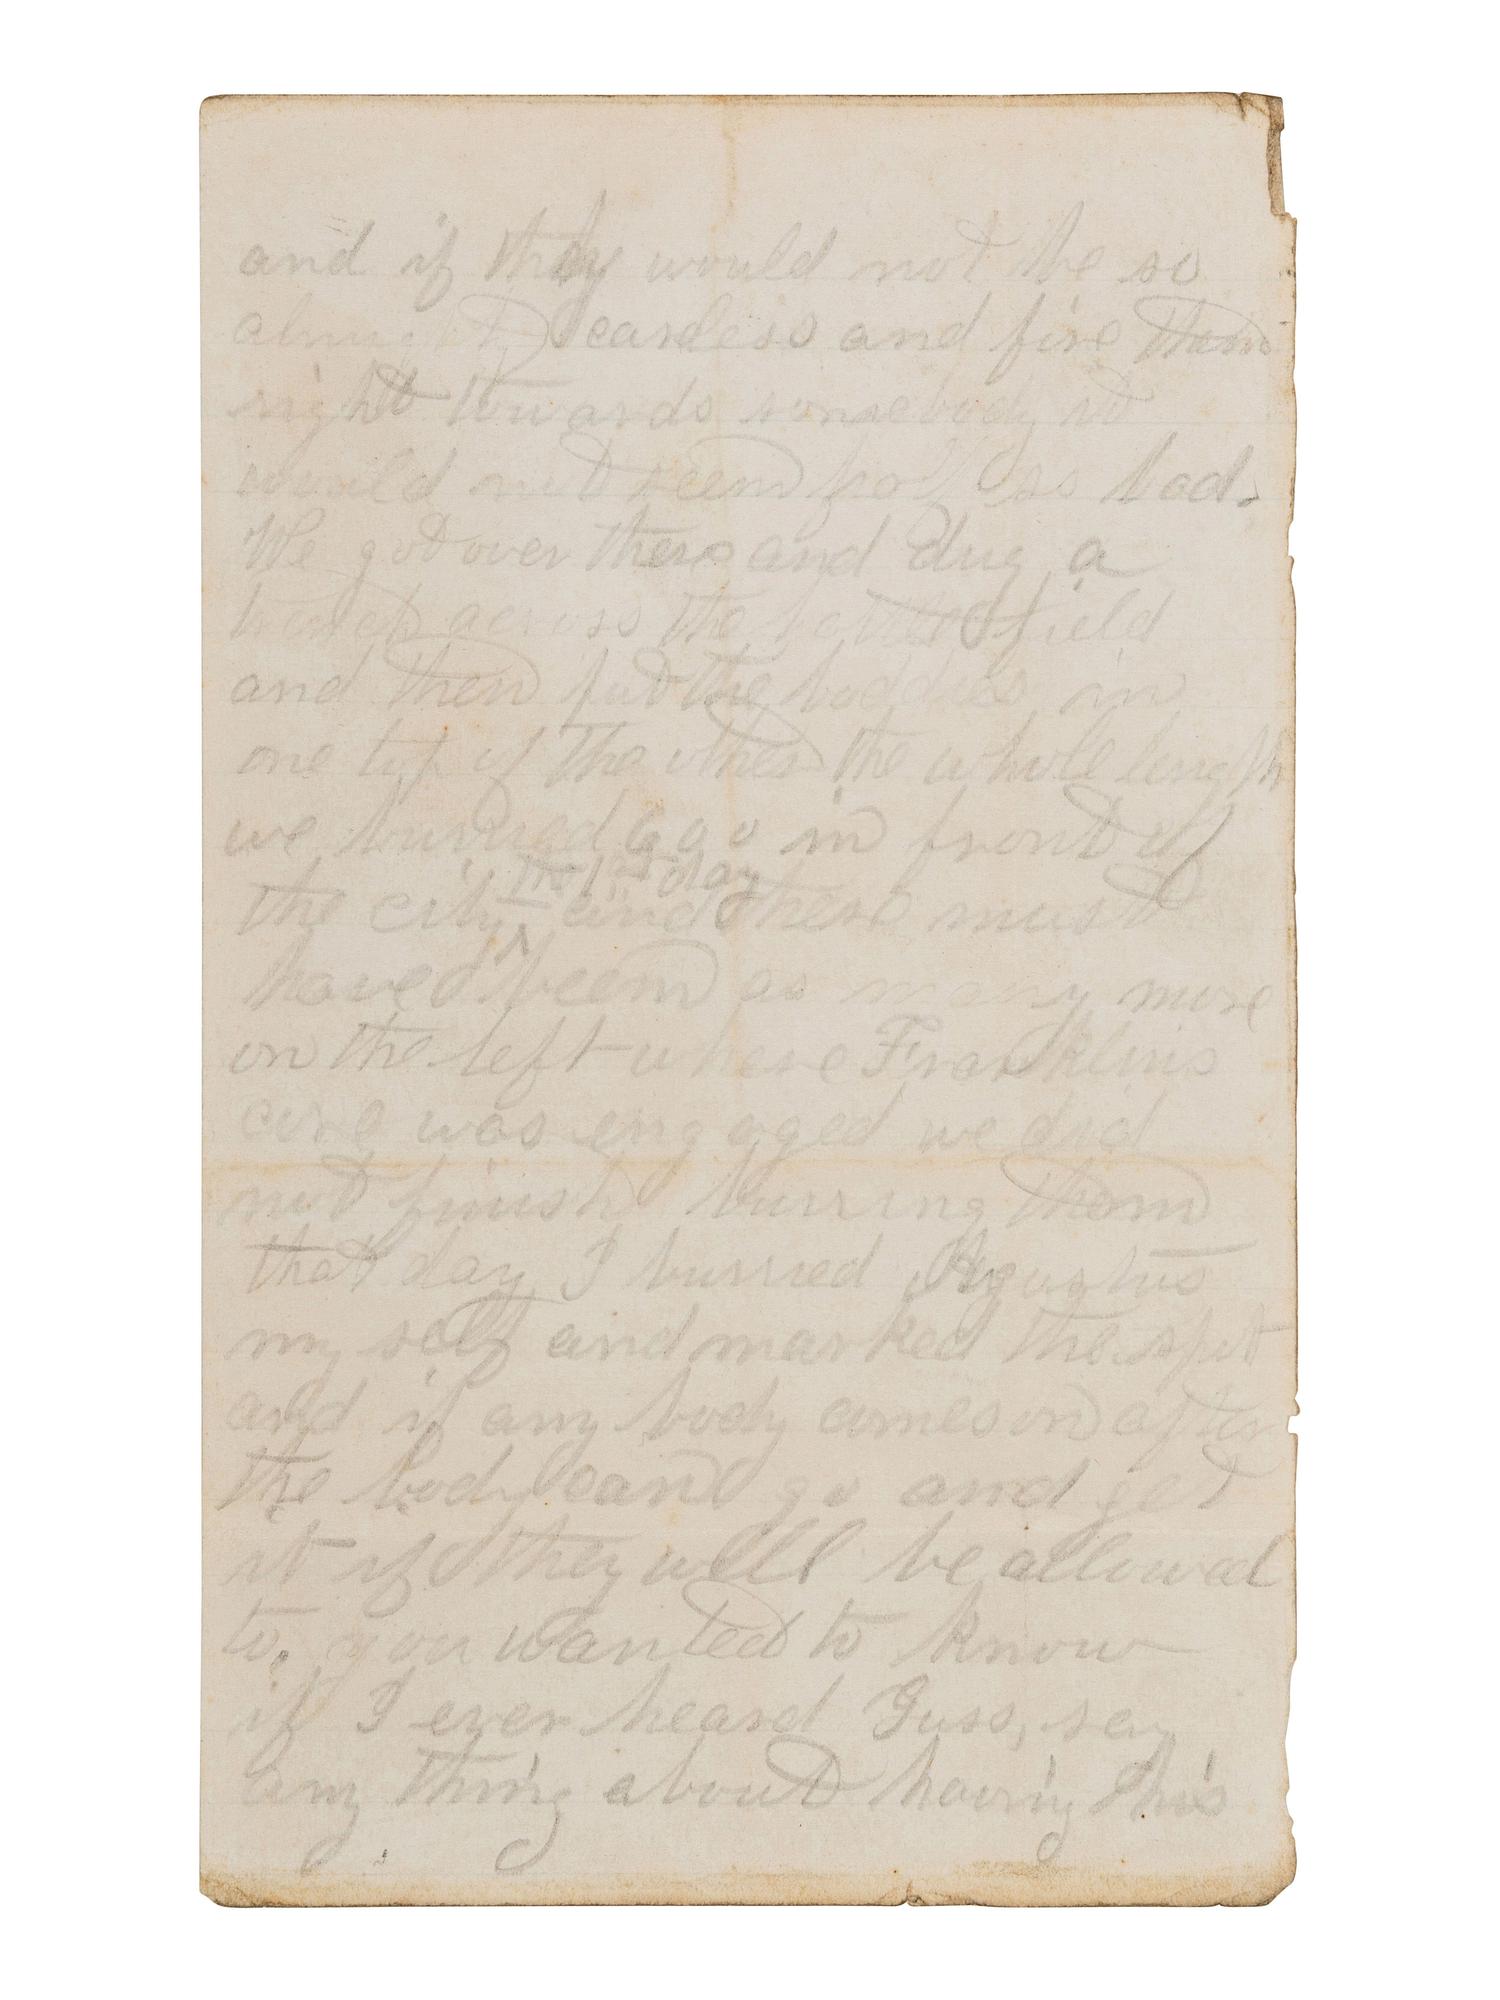 and if they would not be so
almighty careless and fire them
right towards somebody it
would not seem half so bad.
We got over there and dug a
trench across the battlefield
and then put the boddies in
one top of the other the whole length
we burried 600 in front of
the 1st day
the city ^ and there must
have been as many more
on the left where Franklins
core was engaged we did
not finish burring them
that day I burried Agustus
my self and marked the spot
and if any body comes on after
the body can go and get
it if they will be allowed
to. you wanted to know
if I ever heard Guss, say
any thing about having his